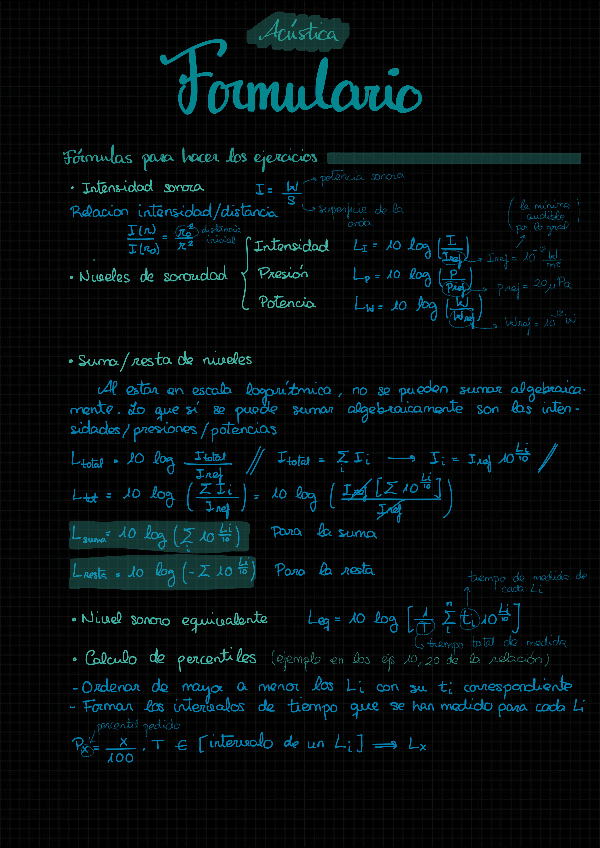 Acústica
Formulario
Fórmulas para hacer los ejercicios
• Intensidad sonora I = W/S → potencia sonora
→ superficie de la onda
Relacion intensidad/distancia
I(r)/I(r₀) = r₀²/r² → distancia inicial
(la mínima audible por lo gral)
• Niveles de sonoridad { Intensidad L_I = 10 log (I/Iref) → Iref = 10⁻¹² W/m²
Presión L_P = 10 log (P/Pref) → Pref = 20 μPa
Potencia L_W = 10 log (W/Wref) → Wref = 10⁻¹² W
• Suma/resta de niveles
Al estar en escala logarítmica, no se pueden sumar algebraica-
mente. Lo que sí se puede sumar algebraicamente son las inten-
sidades/presiones/potencias
Ltotal = 10 log Itotal/Iref // Itotal = Σᵢ Ii → Ii = Iref 10^(Li/10) /
Ltot = 10 log (Σ Ii/Iref) = 10 log (Iref [Σ 10^(Li/10)]/Iref)
Lsuma = 10 log (Σᵢ 10^(Li/10)) Para la suma
Lresta = 10 log (- Σ 10^(Li/10)) Para la resta
tiempo de medida de cada Li
• Nivel sonoro equivalente Leq = 10 log [1/T Σᵢⁿ ti 10^(Li/10)]
→ tiempo total de medida
• Calculo de percentiles (ejemplo en los ej 10, 20 de la relación)
- Ordenar de mayor a menor los Li con su ti correspondiente
- Formar los intervalos de tiempo que se han medido para cada Li
percentil pedido
Px = x/100 . T ∈ [intervalo de un Li] ⟹ Lx